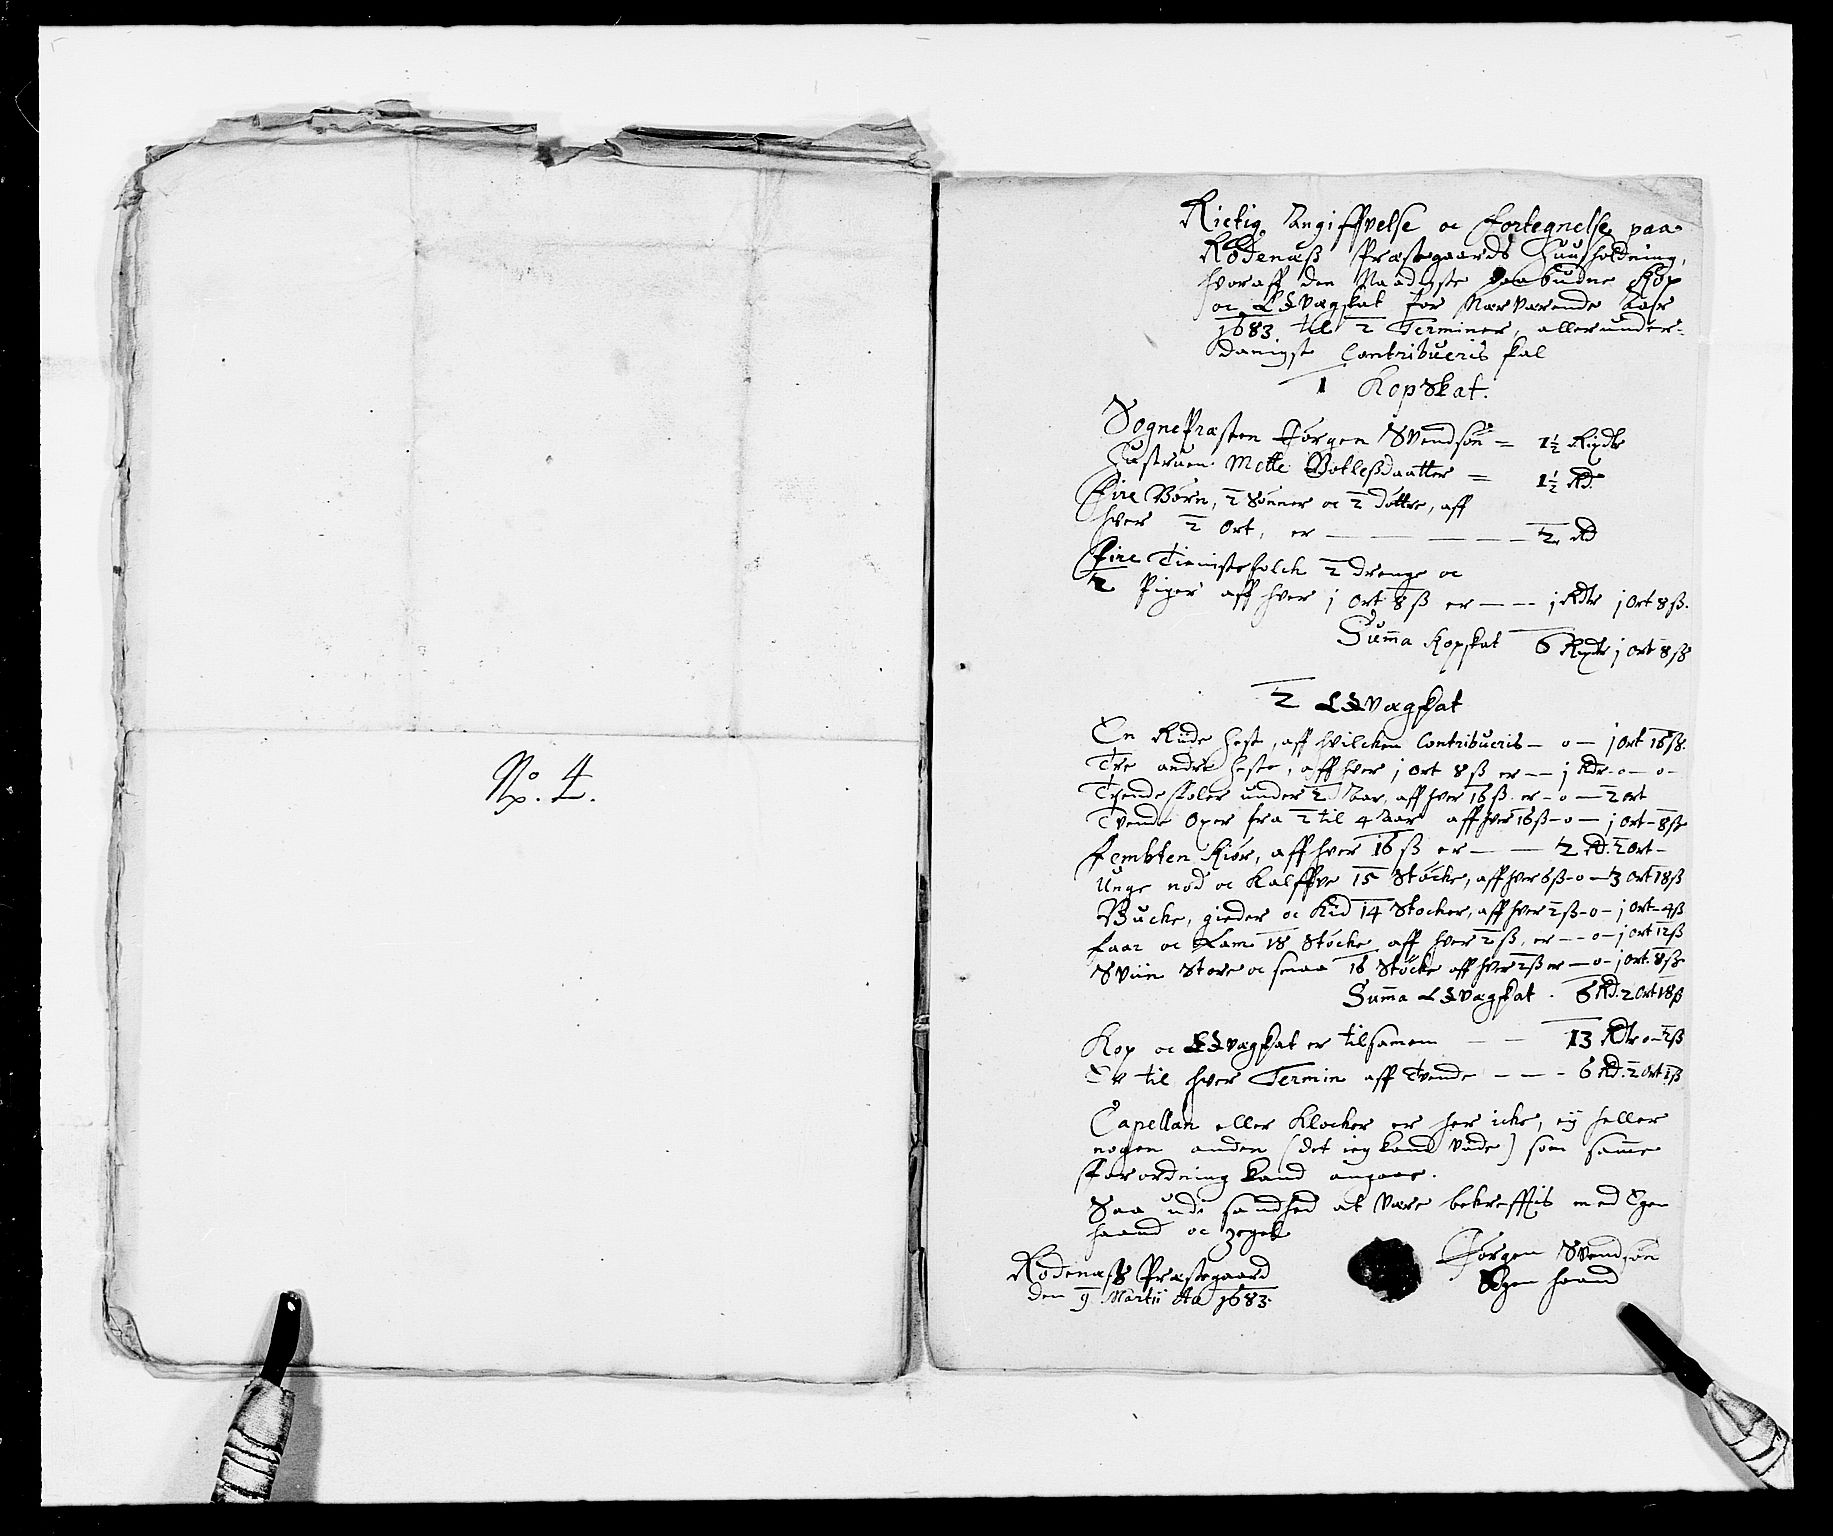 No. 4.
Rictig Angiffvelse oc fortegnelse paa
Rødenæss Præstegaards Huusholdning,
hvoraff den Naadigste paabudne Kop
oc Qvægskat for Nærværende Aar
1683 til 2 Terminer, allerunder-
danigst Contribueris skal
1 Kopskat.
SognePræsten Jørgen Svendsøn = 1½ Rixdlr
Hustruen Mette Botlessdaatter = 1½ Rd.
Fire Børn, 2 Sønner oc 2 døttre, aff
hver 2 Ort, er — — — — — 2 Rd
Fire Tienistefolck 2 drenge oc
2 Piger aff hver j Ort 8 ß er — — — j Rdlr j Ort 8 ß.
Summa Kopskat 6 Rixdlr j Ort 8 ß
2 Qvægskat
En Ride Hest, aff hvilcken Contribueris — o — j Ort 16 ß.
Tre andre Heste, aff hver j Ort 8 ß er — j Rdr - o — o -
Tvende foler under 2 Aar, aff hver 16 ß. er - o — 2 Ort
Tvende Oxer fra 2 til 4 Aar aff hver 16 ß - o — j Ort - 8 ß
Fembten Kiør, aff hver 16 ß er — — 2 Rd. 2 Ort -
Unge nød oc Kalffve 15 Støcke, aff hver 6 ß - o — 3 Ort 18 ß
Bucke, gieder oc Kid 14 Stocker, aff hver 2 ß - o - j Ort - 4 ß
Faar oc Lam 18 Støcke aff hver 2 ß, er — - o - j Ort 12 ß
Sviin Store oc smaa 16 Støcke aff hver 2 ß er — o - j Ort. 8 ß
Summa Qvægskat . 6 Rd. 2 Ort 18 ß
Kop oc Qvægskat er tilsamen — — 13 Rdlr o - 2 ß
Er til hver Termin aff Tvende — — - 6 Rd. 2 Ort 1 ß
Capellan eller Klocker er her icke, ej heller
nogen anden (det ieg kand vide) som samme
forordning kand angaae.
Saa udi sandhed at være bekrefftis med Egen
haand oc Zegel
Rødenæss Præstegaard
den 9 Martii Ao 1683.
Jørgen Svendsøn
Egen haand